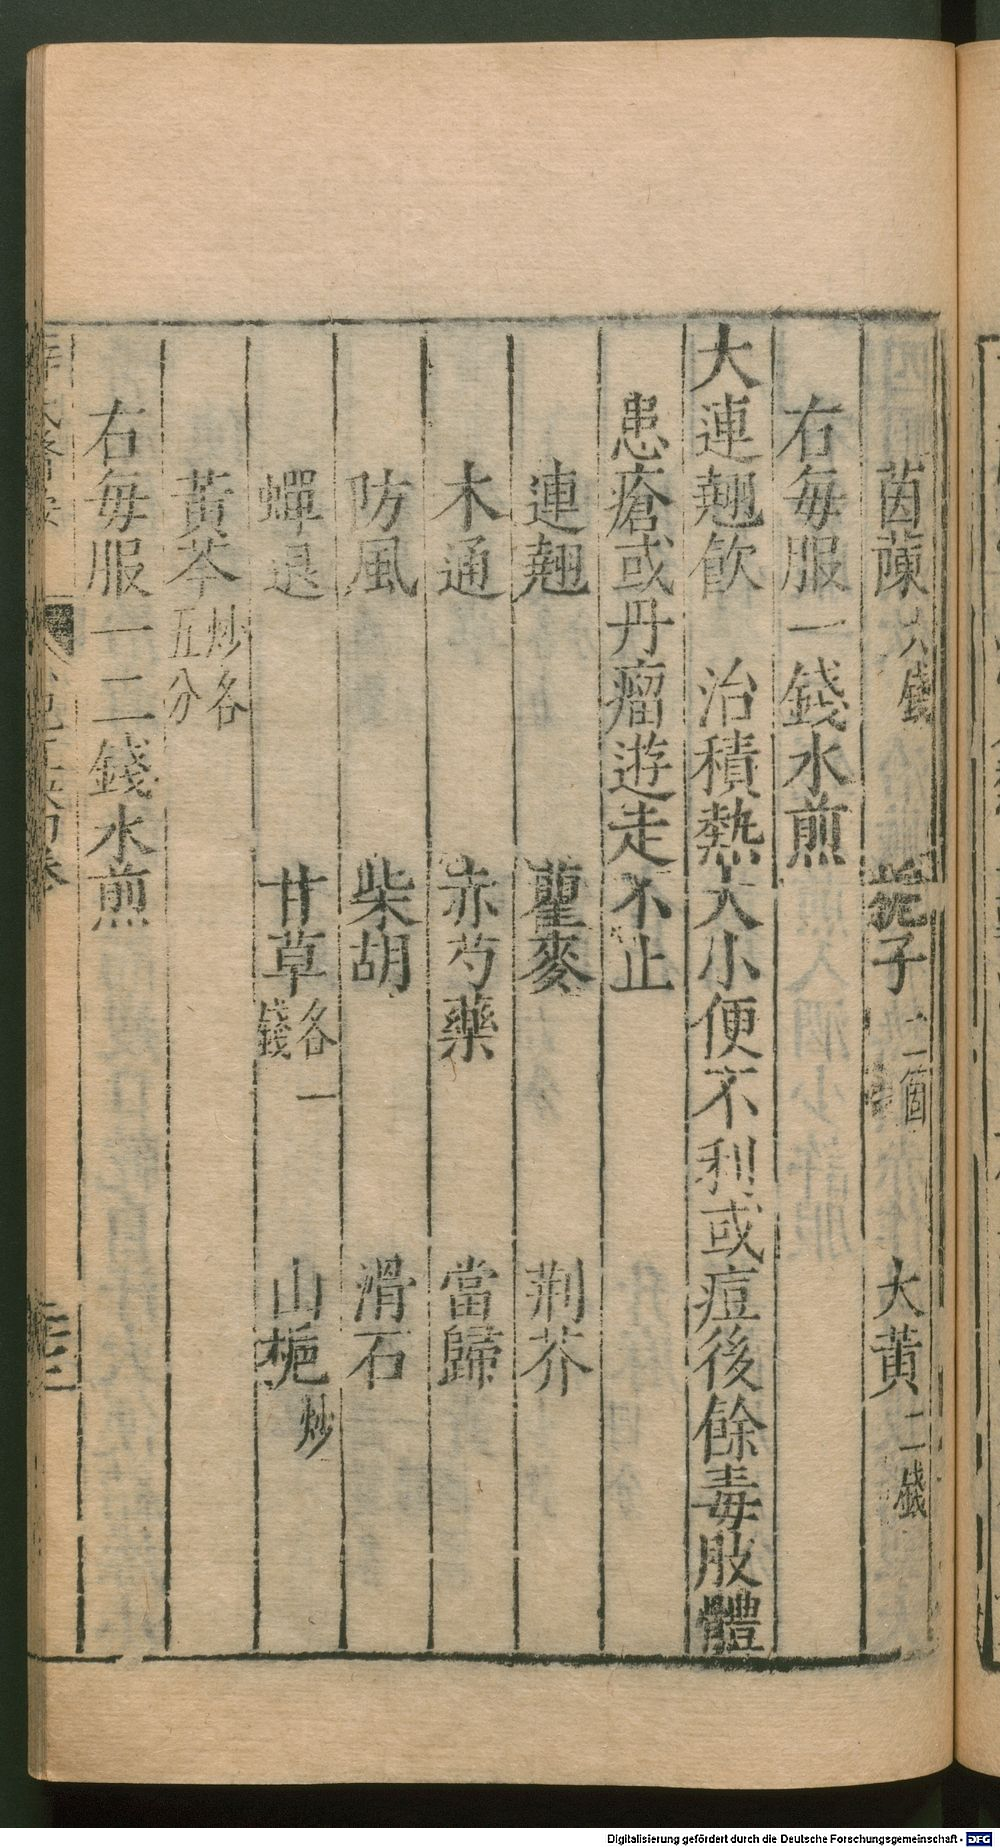 茵蔯六錢　梔子二箇　大黃二錢
右每服一錢水煎
大連翹飲　治積熱大小便不利或痘後餘毒肢體
患瘡或丹瘤遊走不止
連翹　瞿麥　荆芥
木通　赤芍藥　當歸
防風　柴胡　滑石
蟬退　甘草各一錢　山梔炒
黃芩炒各五分
右每服一二錢水煎
Digitalisierung gefördert durch die Deutsche Forschungsgemeinschaft - DFG